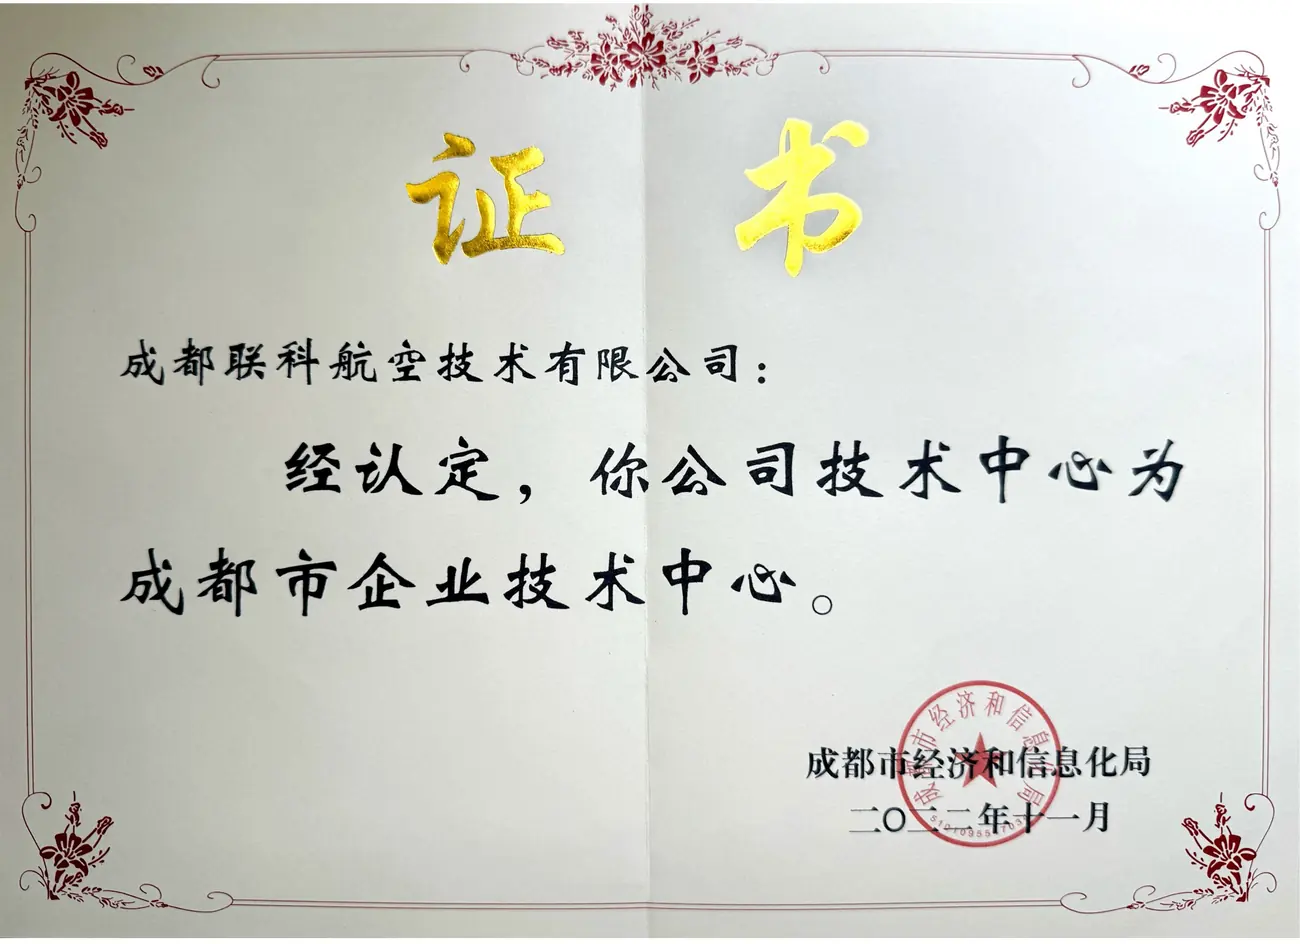 证书
成都联科航空技术有限公司：
经认定，你公司技术中心为
成都市企业技术中心。
成都市经济和信息化局
二〇二二年十一月
成都市经济和信息化局